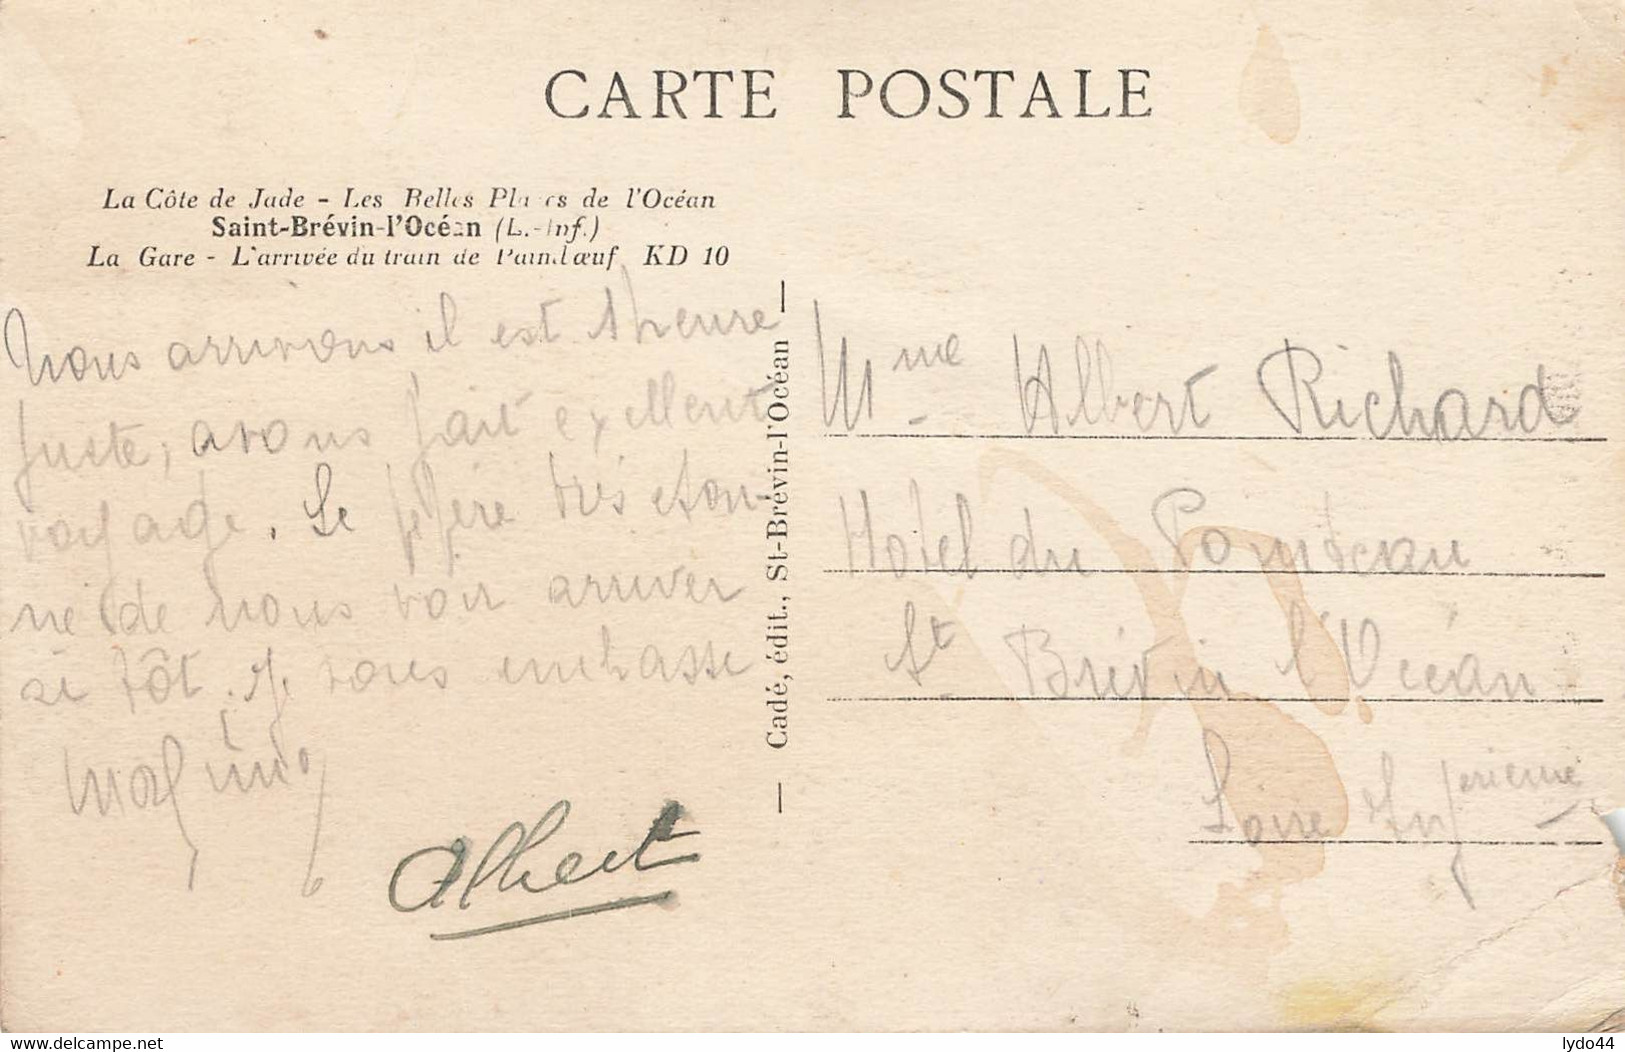 CARTE POSTALE
La Côte de Jade - Les Belles Plages de l'Océan
Saint-Brévin-l'Océan (L.-Inf.)
La Gare - L'arrivée du train de Paimbœuf KD 10
Nous arrivons il est 1 heure
juste, avons fait exellent
voyage. Le pépère très eton-
né de nous voir arriver
si tôt. Je vous embrasse
Albert
— Cadé, édit., St-Brévin-l'Océan —
Mme Albert Richard
Hotel du Pointeau
St Brévin l'Océan
Loire Inferieure
delcampe.net
lydo44